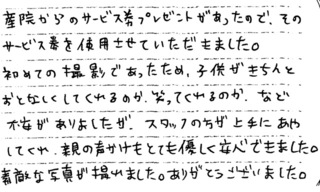 産院からのサービス券プレゼントがあったので、その
サービス券を使用させていただきました。
初めての撮影であったため、子供がきちんと
おとなしくしてくれるのか、笑ってくれるのか、など
不安がありましたが、スタッフの方が上手にあや
してくれ、親の声かけもとても優しく安心できました。
素敵な写真が撮れました。ありがとうございました。